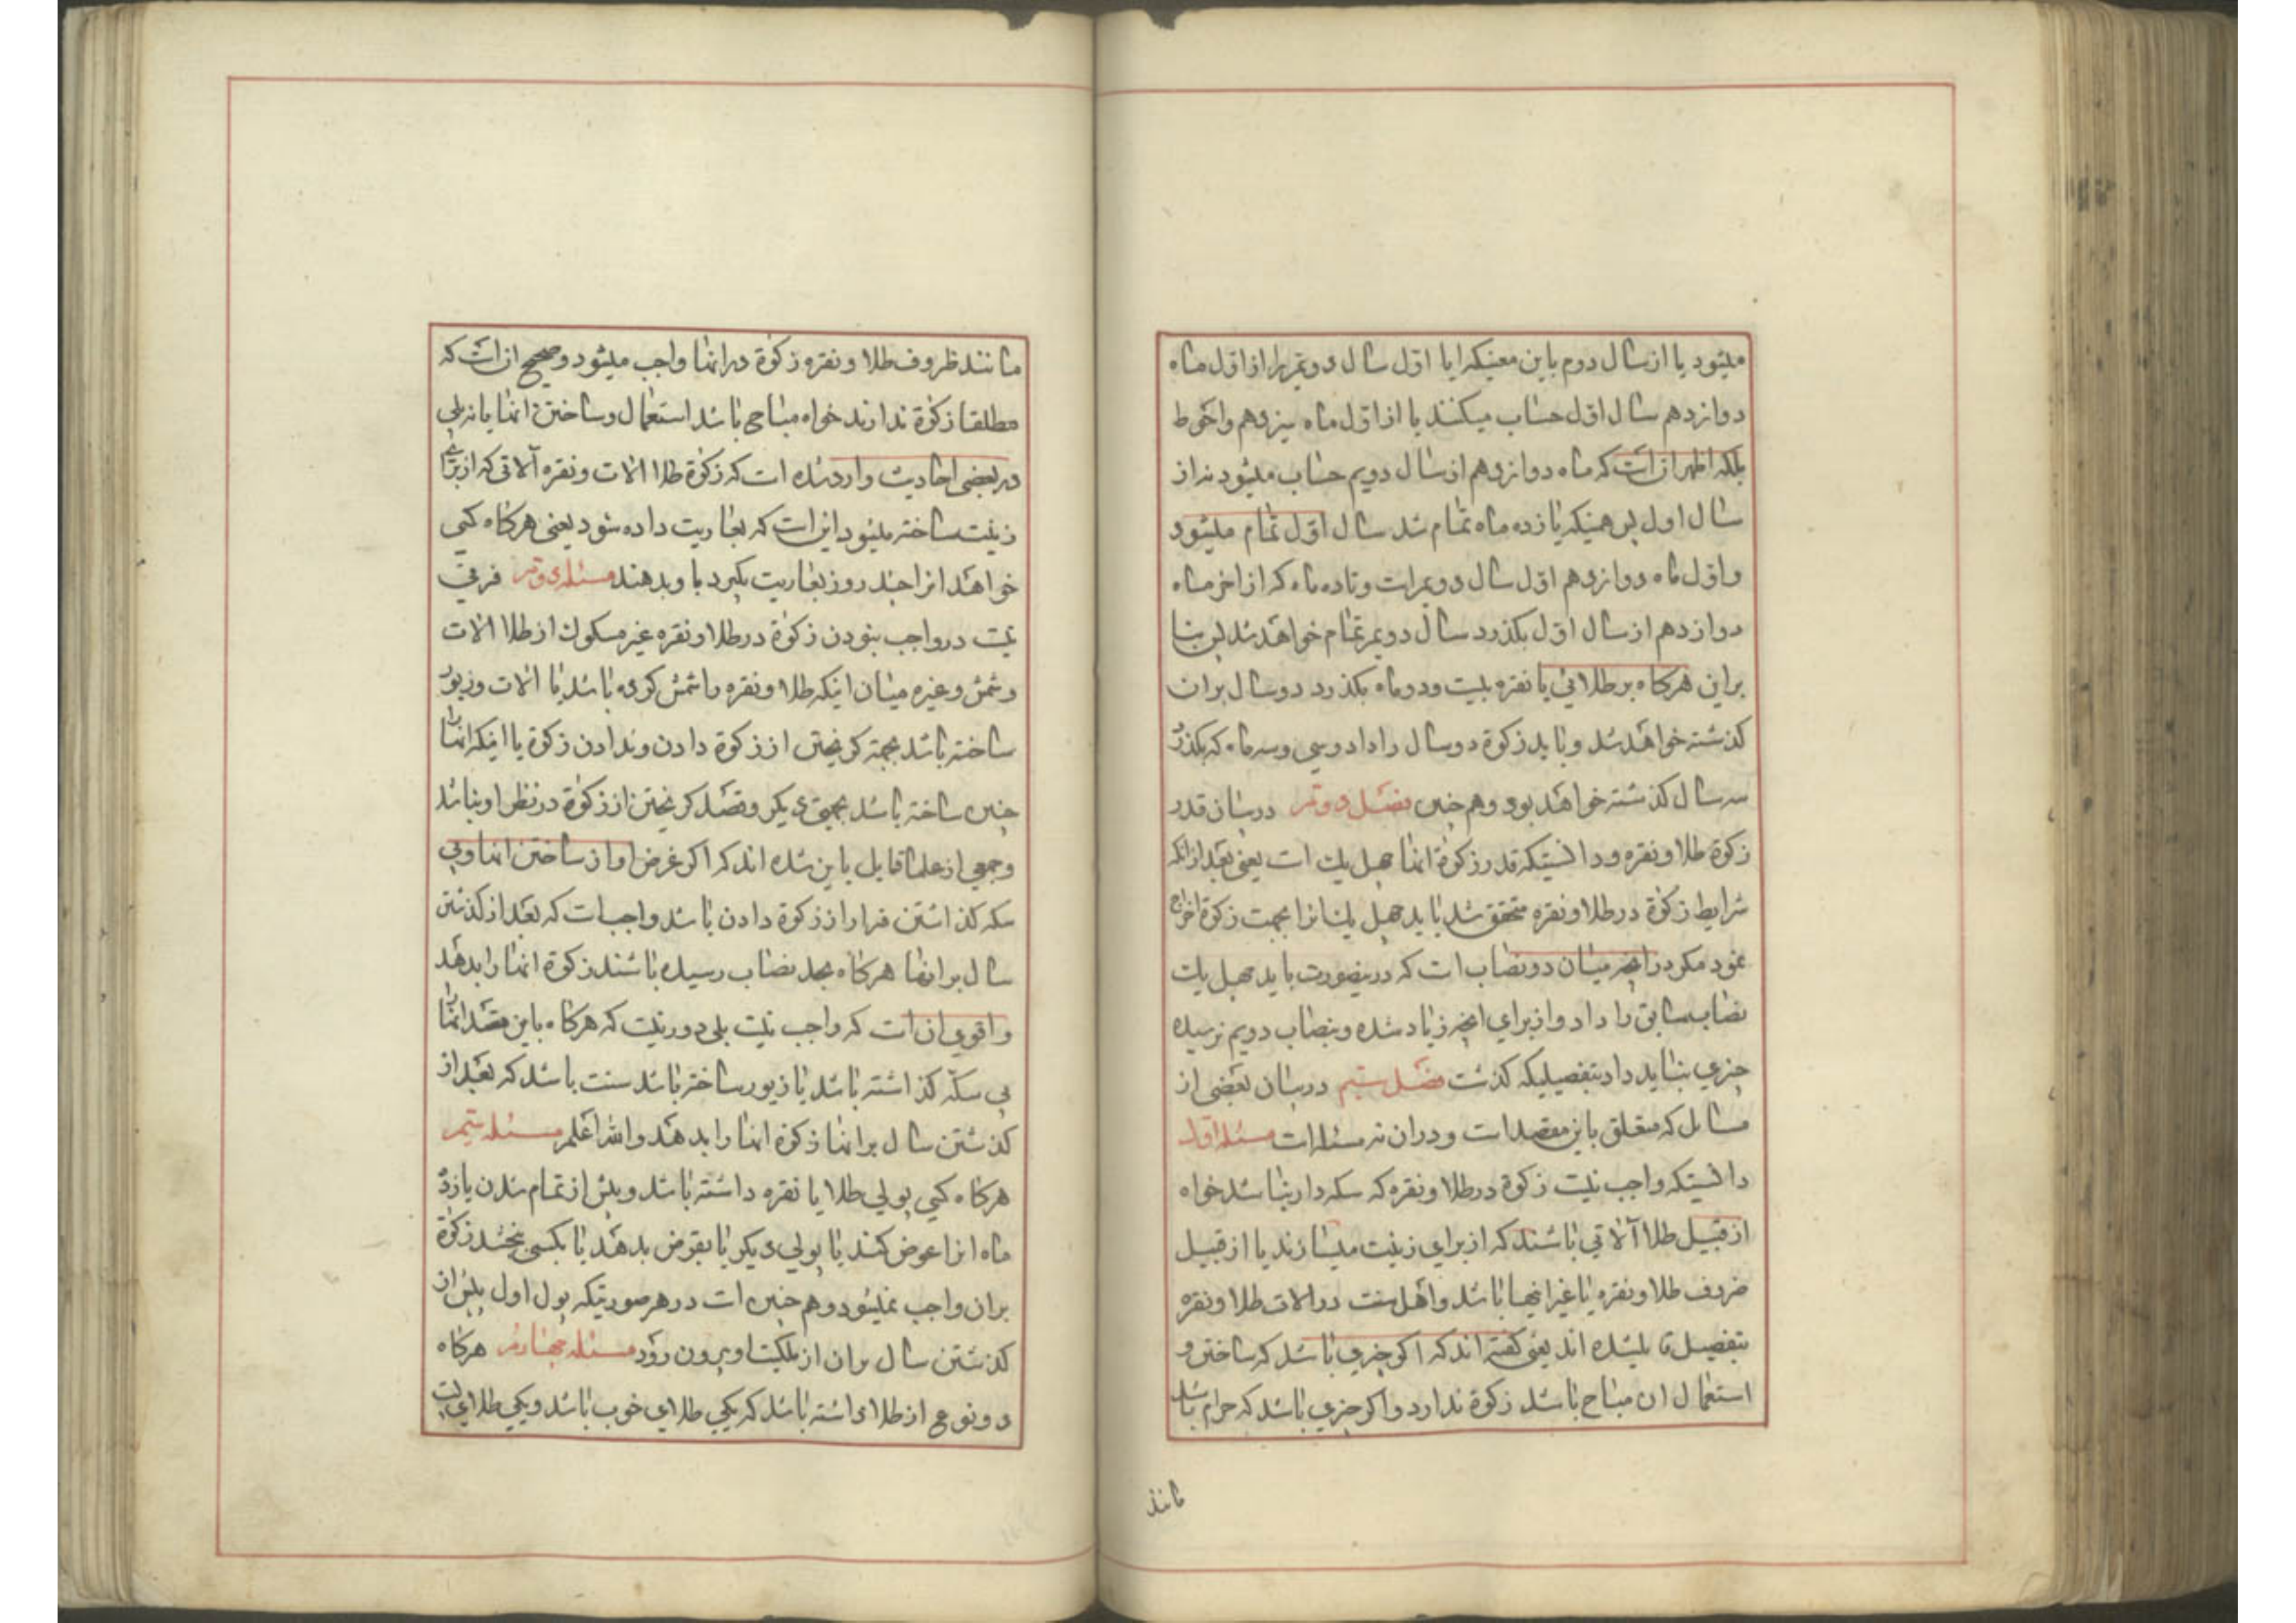 میشود یا از سال دوم باین معنیکه ایا اول سال دویم را از اول ماه
دوازدهم سال اول حساب میکنند یا از اول ماه سیزدهم و احوط
بلکه اظهر ان است که ماه دوازدهم از سال دویم حساب میشود نه از
سال اول پس همینکه یازده ماه تمام شد سال اول تمام میشود
و اول ماه دوازدهم اول سال دویم است و تا ده ماه که از اخر ماه
دوازدهم از سال اول بکذرد سال دویم تمام خواهد شد پس بنا
براین هرکاه بر طلائی یا نقره بیست و دو ماه بکذرد دو سال بران
کذشته خواهد شد و باید زکوة دو سال را داد و سی و سه ماه که بکذرد
سه سال کذشته خواهد بود و هم چنین فصل دویم در بیان قدر
زکوة طلا و نقره و دانستیکه قدر زکوة انها چهل یک است یعنی بعد از انکه
شرایط زکوة در طلا و نقره متحقق شد باید چهل یک انرا بجهت زکوة اخراج
نمود مکر در انچه میان دو نصاب است که درینصورت باید چهل یک
نصاب سابق را داد و از برای انچه زیاد شده و بنصاب دویم نرسیده
چیزی نباید داد بتفصیلیکه کذشت فصل سیم در بیان بعضی از
مسائل که متعلق باین مقصد است و در ان نه مسئله است مسئله اول
دانستیکه واجب نیست زکوة در طلا و نقره که سکه دار نباشد خواه
از قبیل طلا آلاتی باشند که از برای زینت میسازند یا از قبیل
ضروف طلا و نقره یا غیر اینها باشد و اهل سنت در الات طلا و نقره
بتفصیل قایل شده اند یعنی کفته اند که اکر چیزی باشد که ساختن و
استعمال ان مباح باشد زکوة ندارد و اکر چیزی باشد که حرام باشد
مانند
مانند ظروف طلا و نقره زکوة در انها واجب میشود و صحیح ان است که
مطلقا زکوة ندارند خواه مباح باشد استعمال و ساختن انها یا نه بلی
در بعضی احادیث وارد شده است که زکوة طلا الات و نقره آلاتی که از برای
زینت ساخته میشود این است که بعاریت داده شود یعنی هرکاه کسی
خواهد انرا چند روز بعاریت بکیرد باو بدهند مسئله دویم فرقی
نیست در واجب نبودن زکوة در طلا و نقره غیر مسکوک از طلا الات
و شمش و غیره میان اینکه طلا و نقره را شمش کرده باشد یا الات و زیور
ساخته باشد بجهة کریختن از زکوة دادن و ندادن زکوة یا اینکه انها را
چنین ساخته باشد بجهتی دیکر و قصد کریختن از زکوة در نظر او نباشد
و جمعی از علما قایل باین شده اند که اکر غرض او از ساختن انها و بی
سکه کذاشتن فرار از زکوة دادن باشد واجب است که بعد از کذشتن
سال بر انها هرکاه بحد نصاب رسیده باشند زکوة انها را بدهد
و اقوی ان است که واجب نیست بلی دور نیست که هرکاه باین قصد انها را
بی سکه کذاشته باشد یا زیور ساخته باشد سنت باشد که بعد از
کذشتن سال بر انها زکوة انها را بدهد و الله اعلم مسئله سیم
هرکاه کسی پولی طلا یا نقره داشته باشد و پیش از تمام شدن یازده
ماه انرا عوض کند یا پولی دیکر یا بقرض بدهد یا بکسی بخشد زکوة
بران واجب نمیشود و هم چنین است در هر صورتیکه پول اول پیش از
کذشتن سال بران از ملکیت او بیرون رود مسئله چهارم هرکاه
دو نوع از طلا داشته باشد که یکی طلای خوب باشد و یکی طلای پست